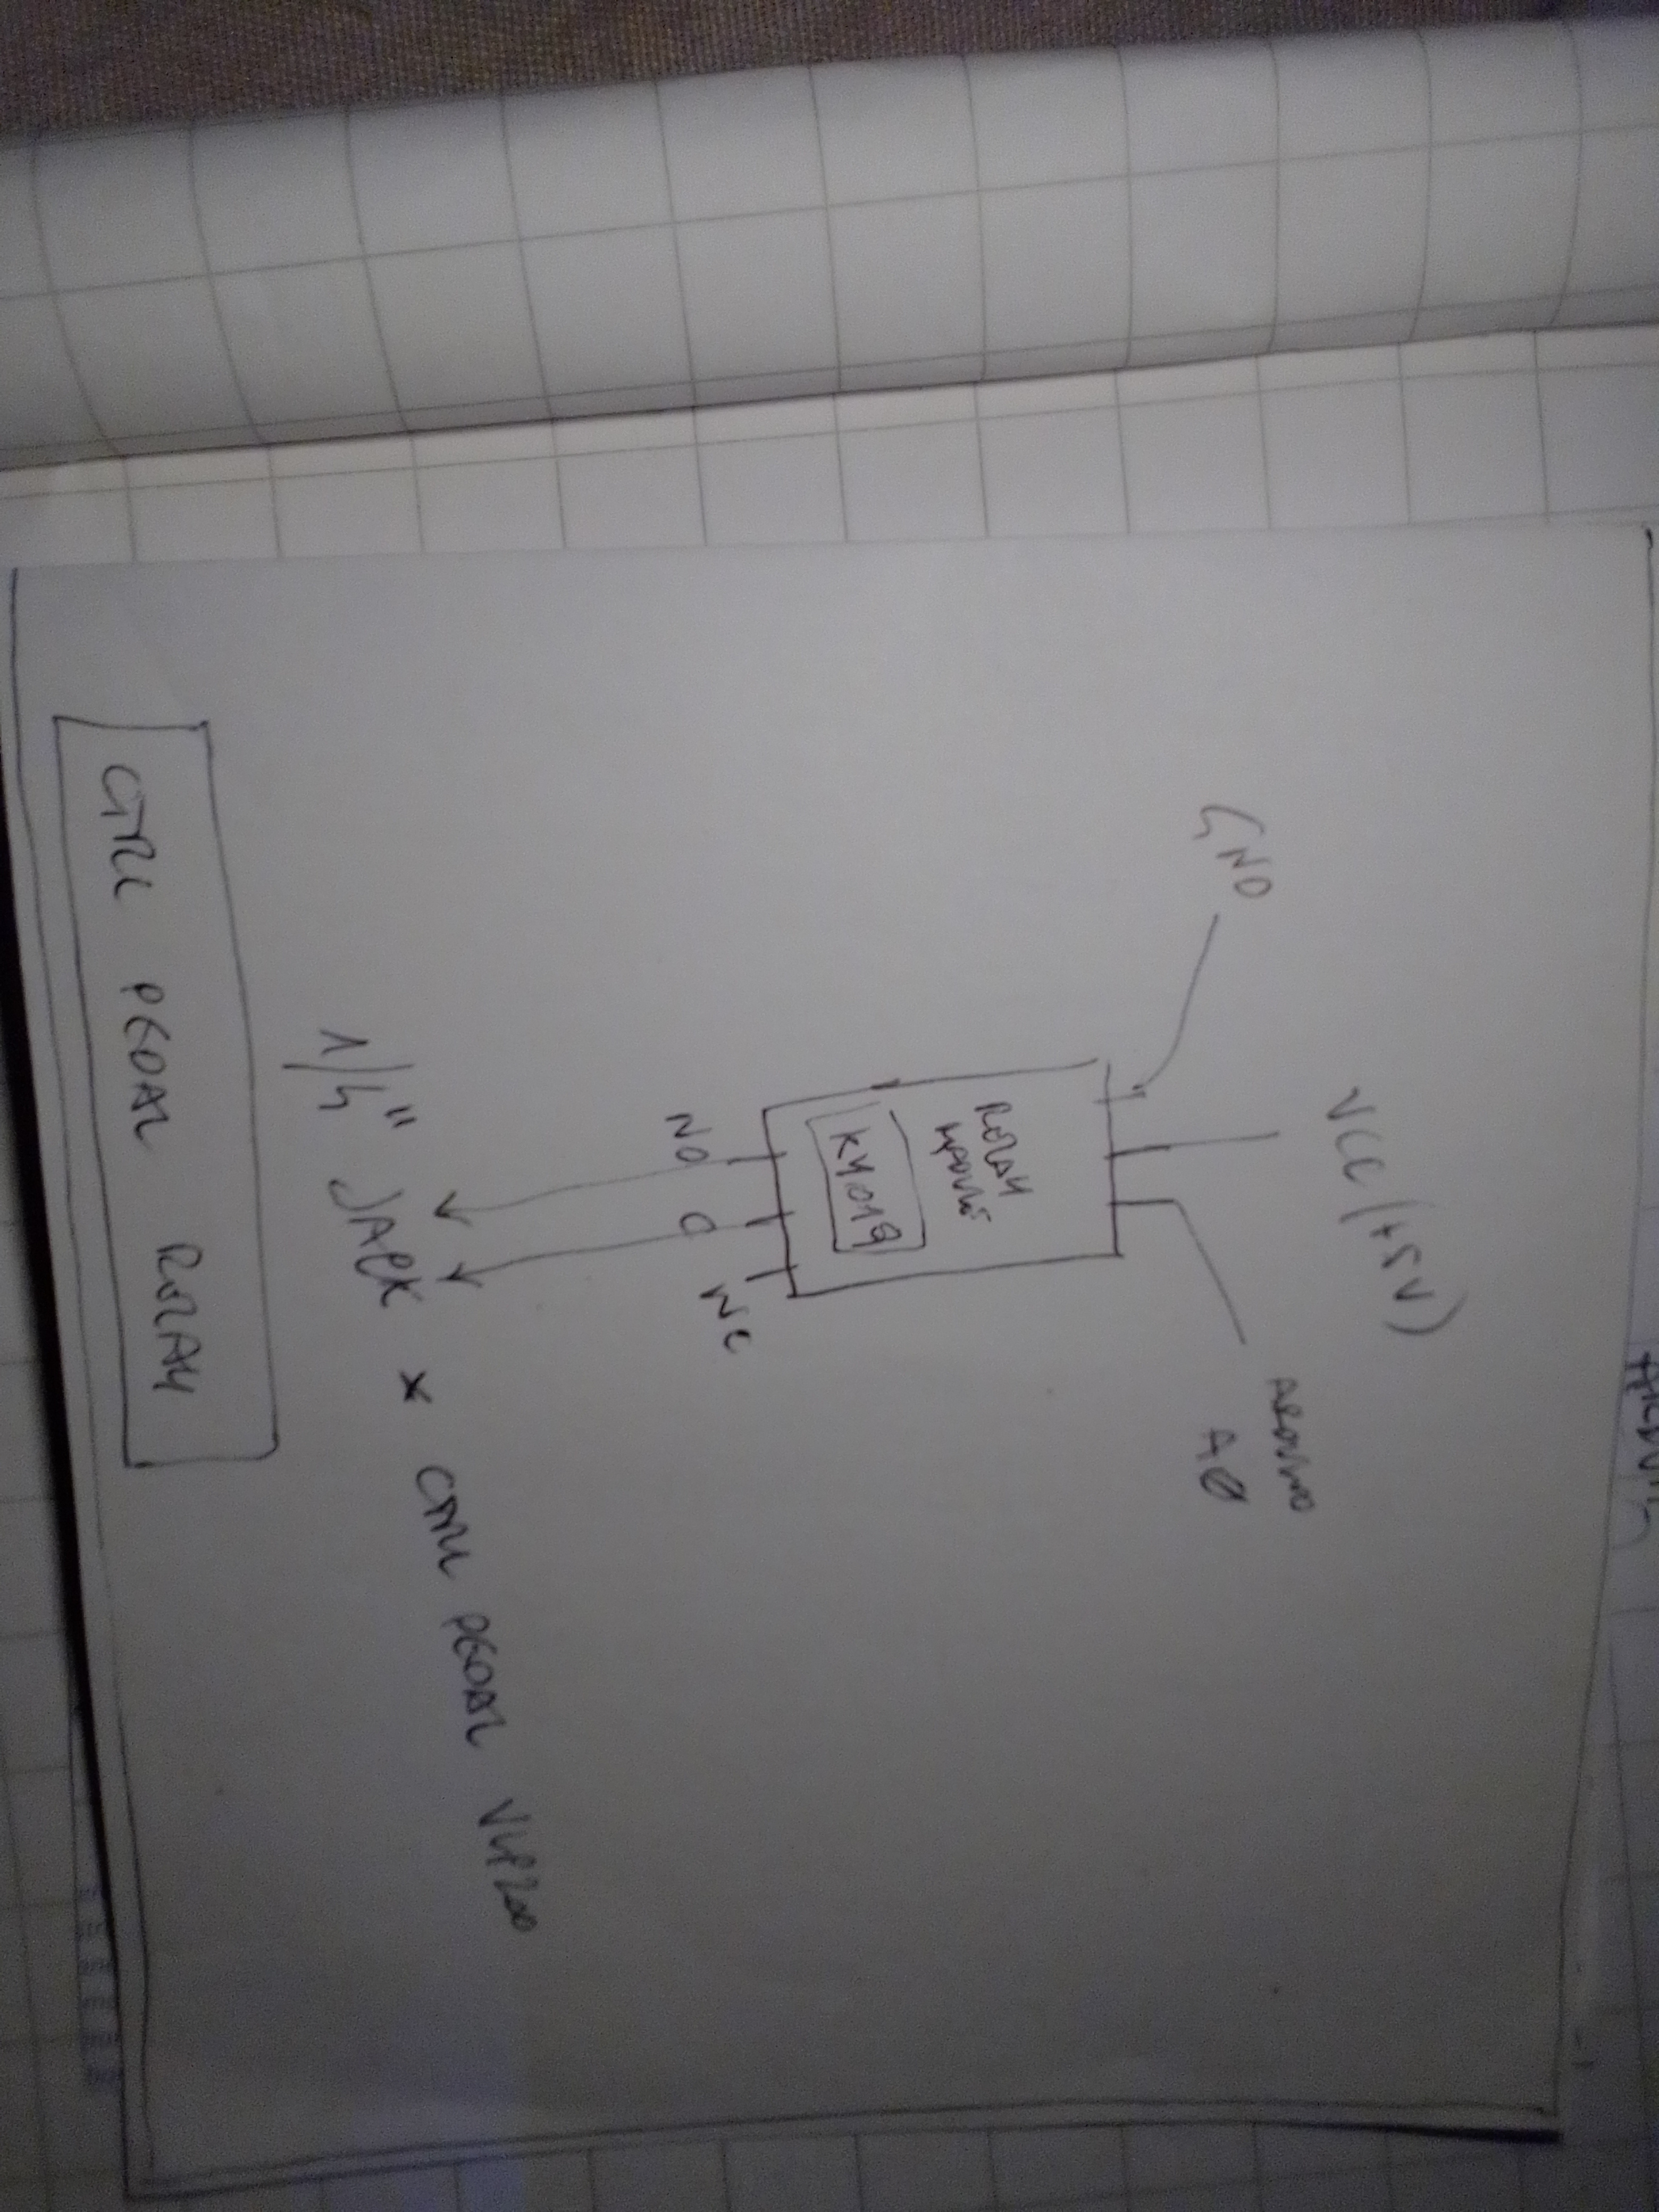 VCC (+5V)
GND
ARDUINO
A0
RELAY
MODULE
KY019
NO C NC
1/4" JACK x CTRL PEDAL VGP200
CTRL PEDAL RELAY